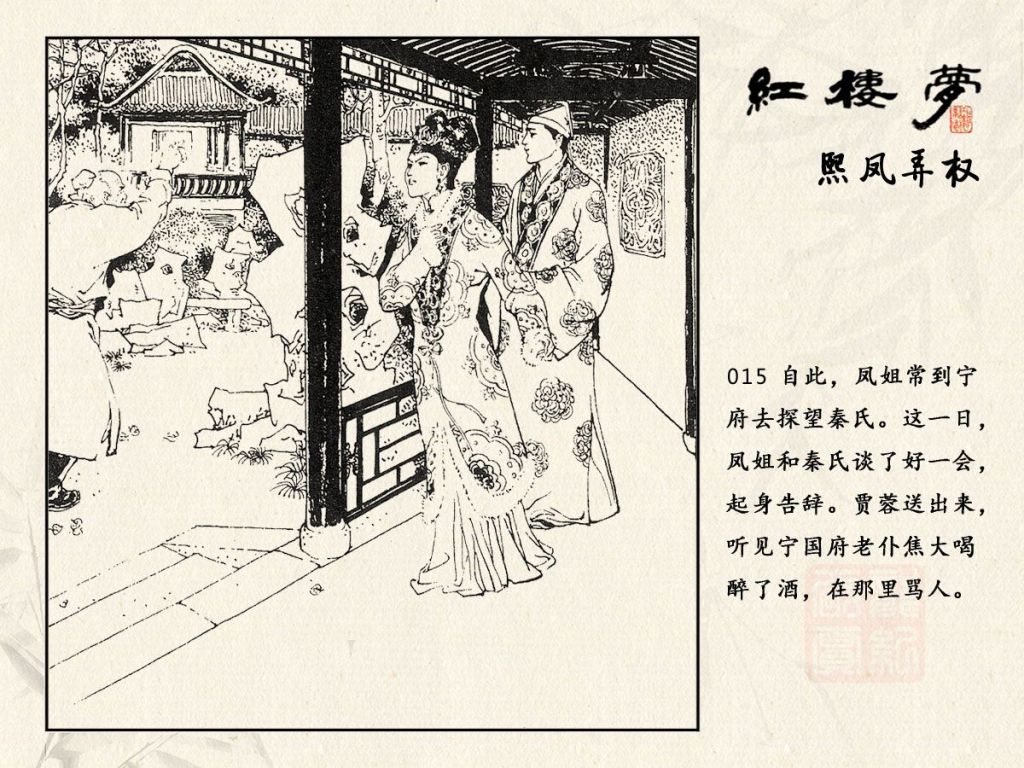 红楼夢
熙凤弄权
015 自此，凤姐常到宁
府去探望秦氏。这一日，
凤姐和秦氏谈了好一会，
起身告辞。贾蓉送出来，
听见宁国府老仆焦大喝
醉了酒，在那里骂人。